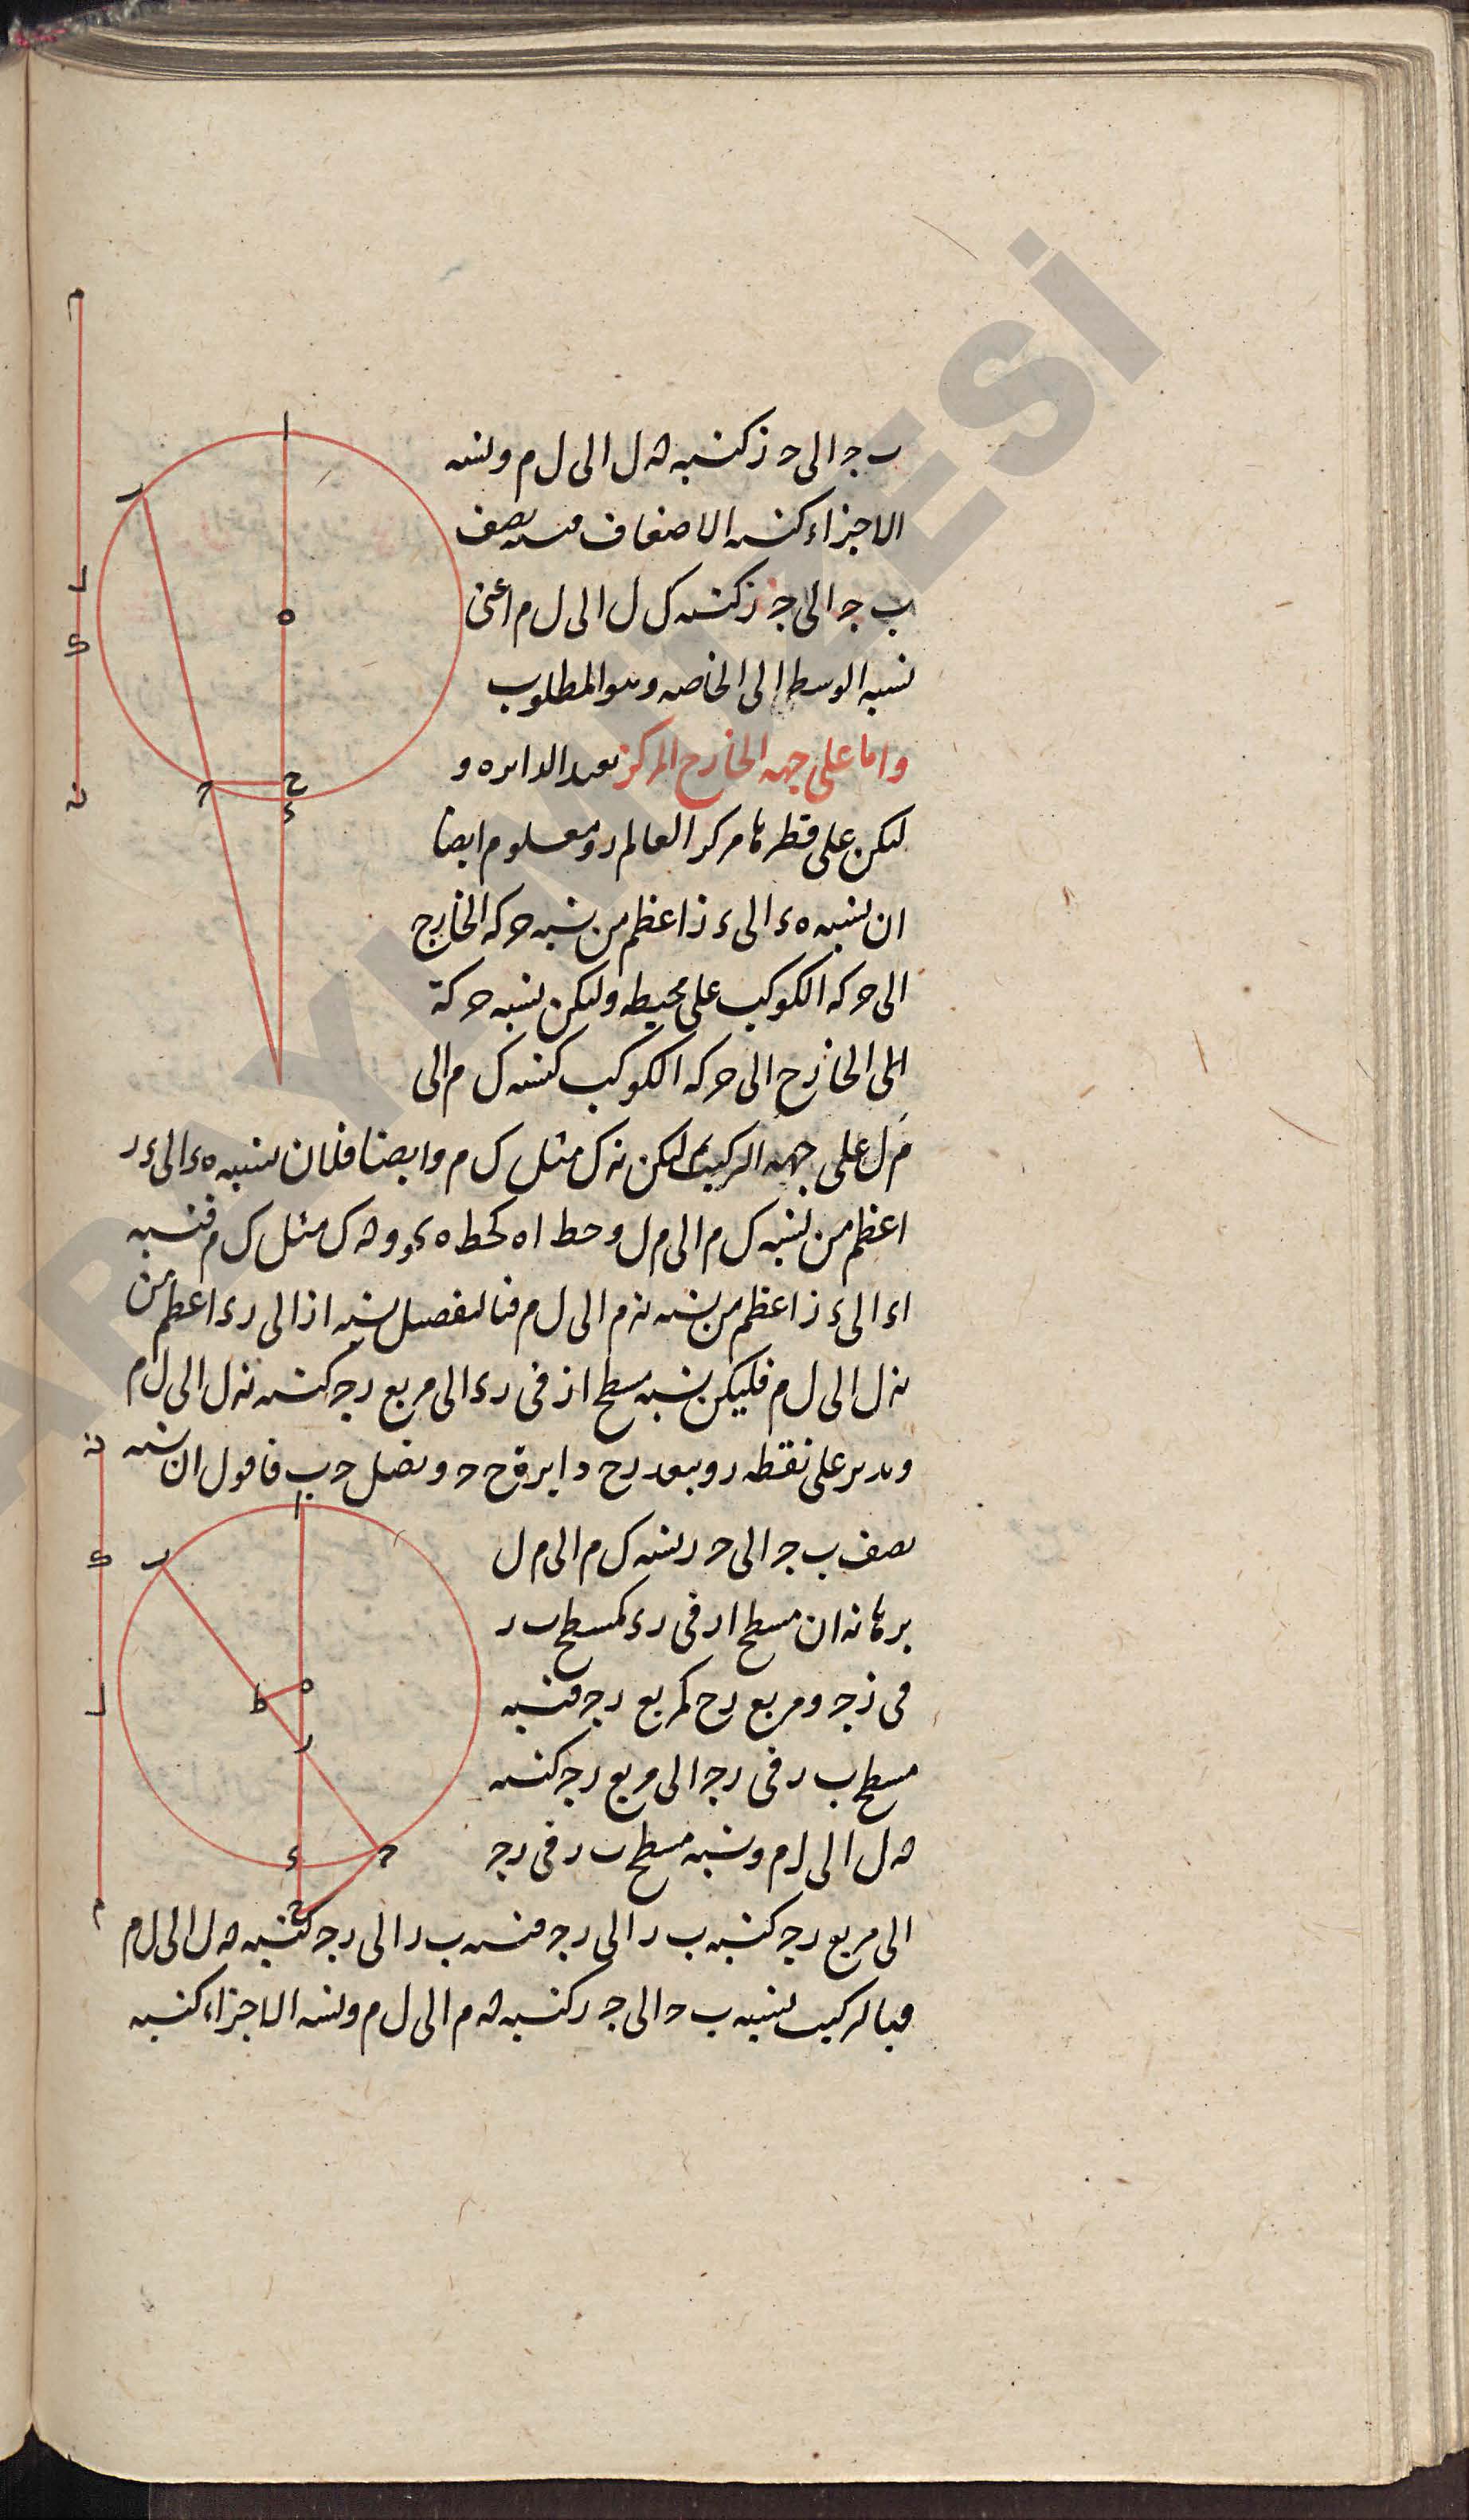 ب جـ الى حـ ز كنسبه نه ل الى ل م ونسبه
الاجزاء كنسبه الاضعاف فنسبه نصف
ب جـ الى جـ ز كنسبه ك ل الى ل م اعنى
نسبه الوسط الى الخاصه وهو المطلوب
واما على جهه الخارج المركز نعيد الدايره و
ليكن على قطرها مركز العالم ر ومعلوم ايضا
ان نسبه ه ء الى ء ز اعظم من نسبه حركه الخارج
الى حركه الكوكب على محيطه وليكن نسبه حركة
الى الخارج الى حركه الكوكب كنسبه ك م الى
م ل على جهه التركيب ليكن نه ك مثل ك م وايضا فلان نسبه ه ء الى ء ر
اعظم من نسبه ك م الى م ل وخط ا ه كخط ه ء و نه ك مثل ك م فنسبه
ا ء الى ء ز اعظم من نسبه نه م الى ل م فبالتفصيل نسبه ا ز الى ر ء اعظم من
نه ل الى ل م فليكن نسبه مسطح ا ز فى ر ء الى مربع ر جـ كنسبه نه ل الى ل م
وندير على نقطه ر وببعد ر ح دايرة ح حـ ونصل حـ ب فاقول ان نسبه
نصف ب جـ الى حـ ر نسبه ك م الى م ل
برهانه ان مسطح ا ر فى ر ء كمسطح ب ر
فى ز جـ ومربع ر ح كمربع ر جـ فنسبه
مسطح ب ر فى ر جـ الى مربع ر جـ كنسبه
نه ل الى ل م ونسبه مسطح ب ر فى ر جـ
الى مربع ر جـ كنسبه ب ر الى ر جـ فنسبه ب ر الى ر جـ كنسبه نه ل الى ل م
فبالتركيب نسبه ب حـ الى جـ ر كنسبه نه م الى ل م ونسبه الاجزاء كنسبه